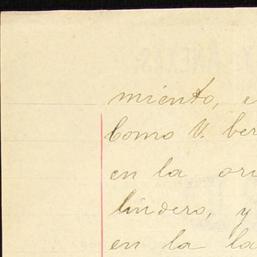 miento, e
como V. ber
en la ori
lindero, y
en la la